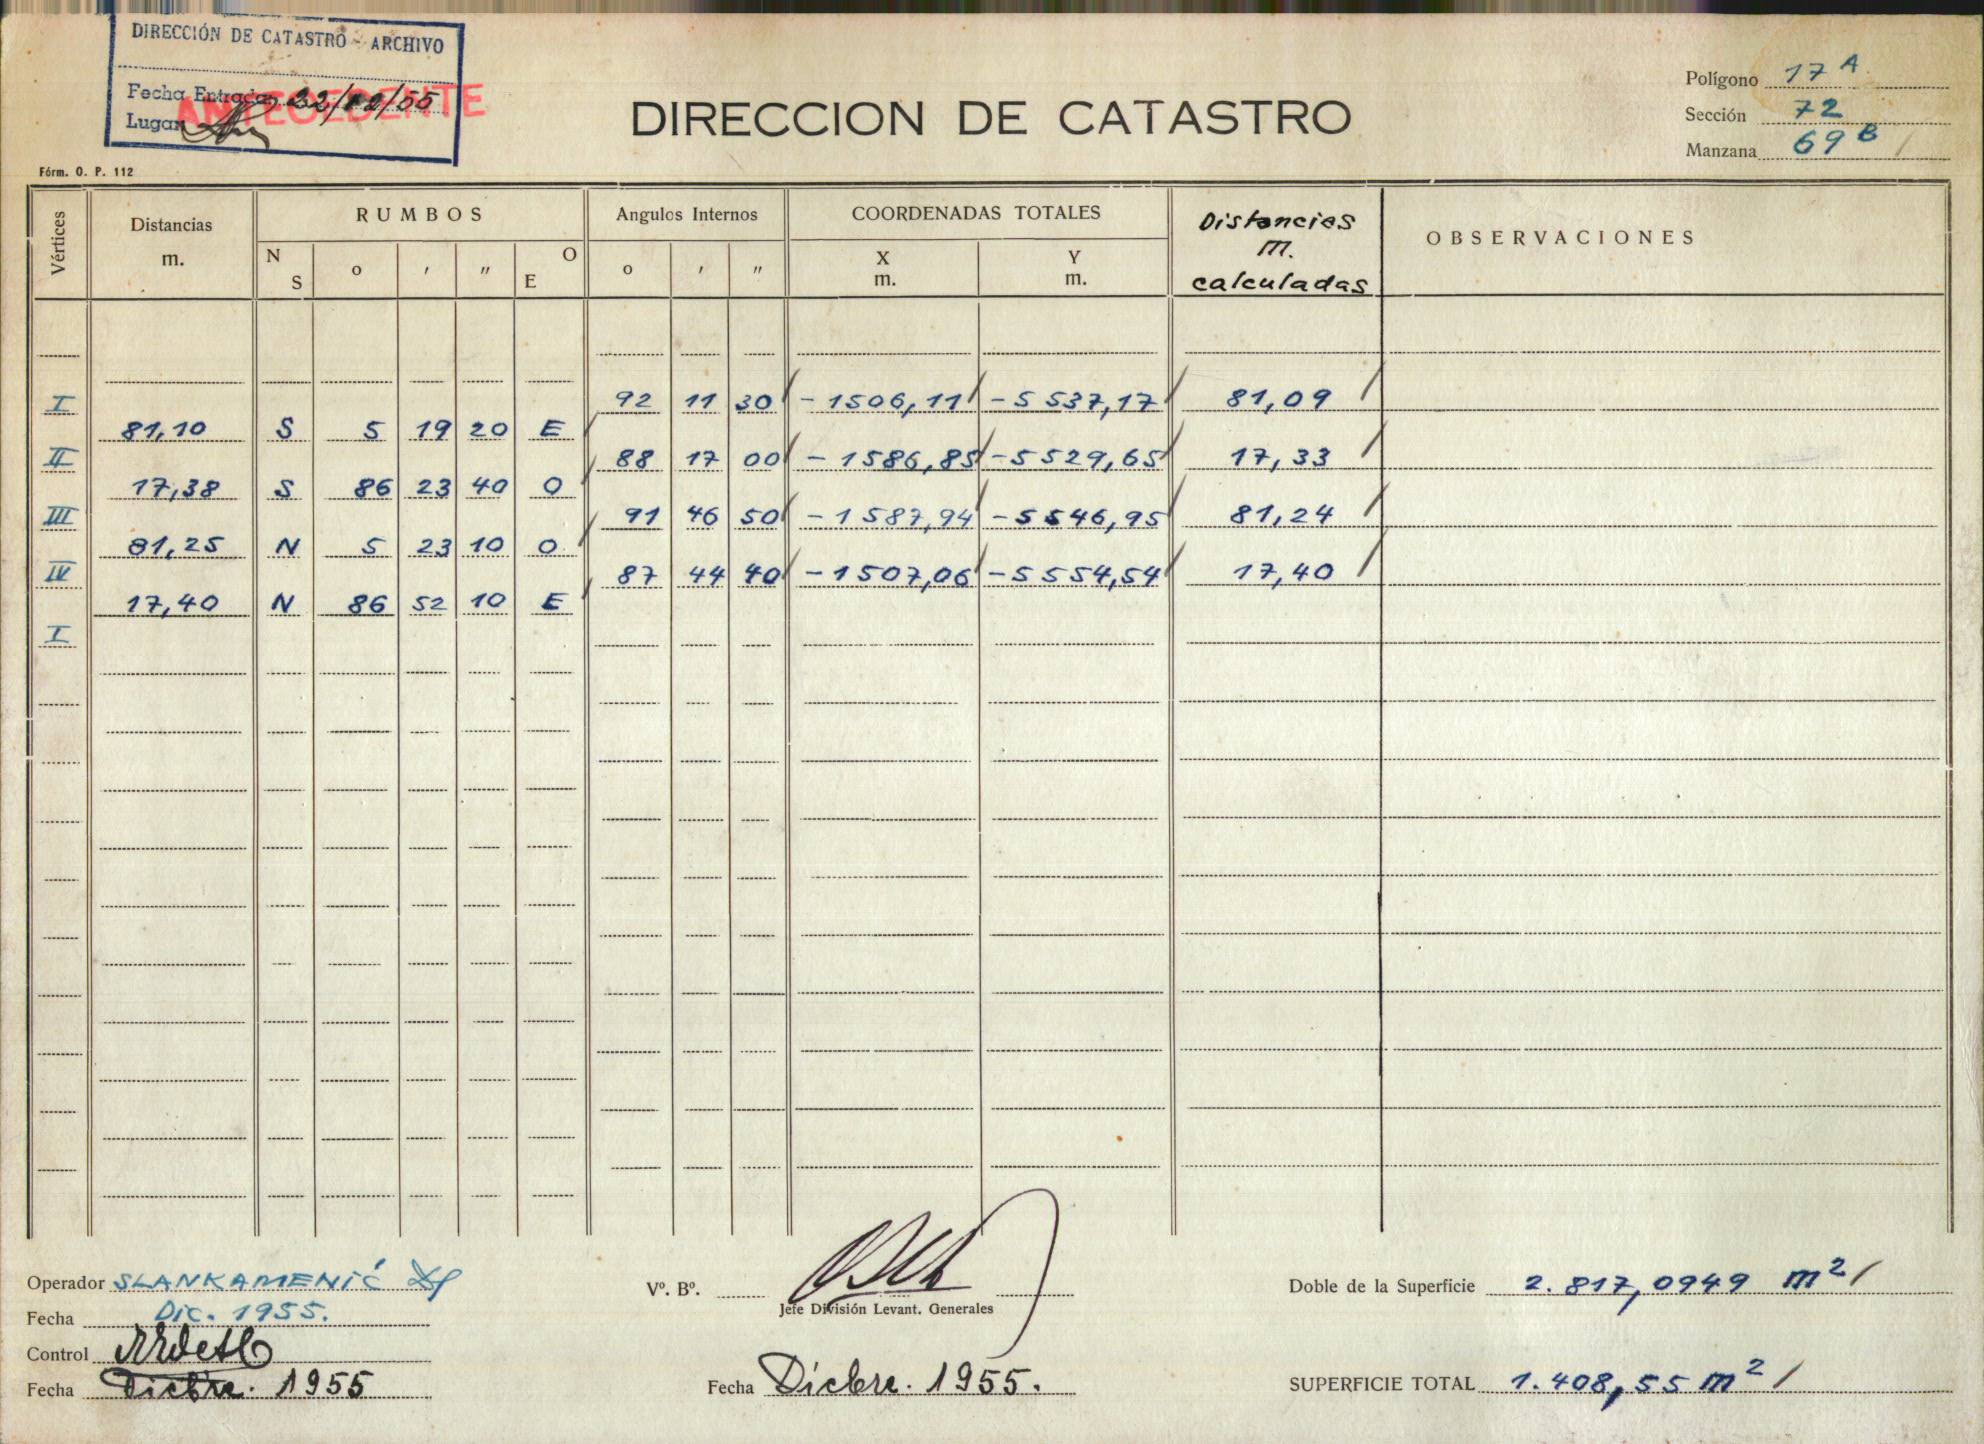 DIRECCIÓN DE CATASTRO - ARCHIVO
Fecha Entrada 22/12/55
ANTECEDENTE
Lugar
Fórm. O. P. 112
DIRECCION DE CATASTRO
Polígono 17 A
Sección 72
Manzana 69 B /
Vértices
Distancias m.
RUMBOS
N S o ' " O E
Angulos Internos
o ' "
COORDENADAS TOTALES
X m. Y m.
Distancias m. calculadas
OBSERVACIONES
I 92 11 30 -1506,11 -5537,17 81,09
81,10 S 5 19 20 E
II 88 17 00 -1586,85 -5529,65 17,33
17,38 S 86 23 40 O
III 91 46 50 -1587,94 -5546,95 81,24
81,25 N 5 23 10 O
IV 87 44 40 -1507,06 -5554,54 17,40
17,40 N 86 52 10 E
I
Operador SLANKAMENIĆ
Fecha Dic. 1955.
Control
Fecha Dicbre. 1955
Vº. Bº.
Jefe División Levant. Generales
Fecha Dicbre. 1955.
Doble de la Superficie 2.817,0949 m² /
SUPERFICIE TOTAL 1.408,55 m² /